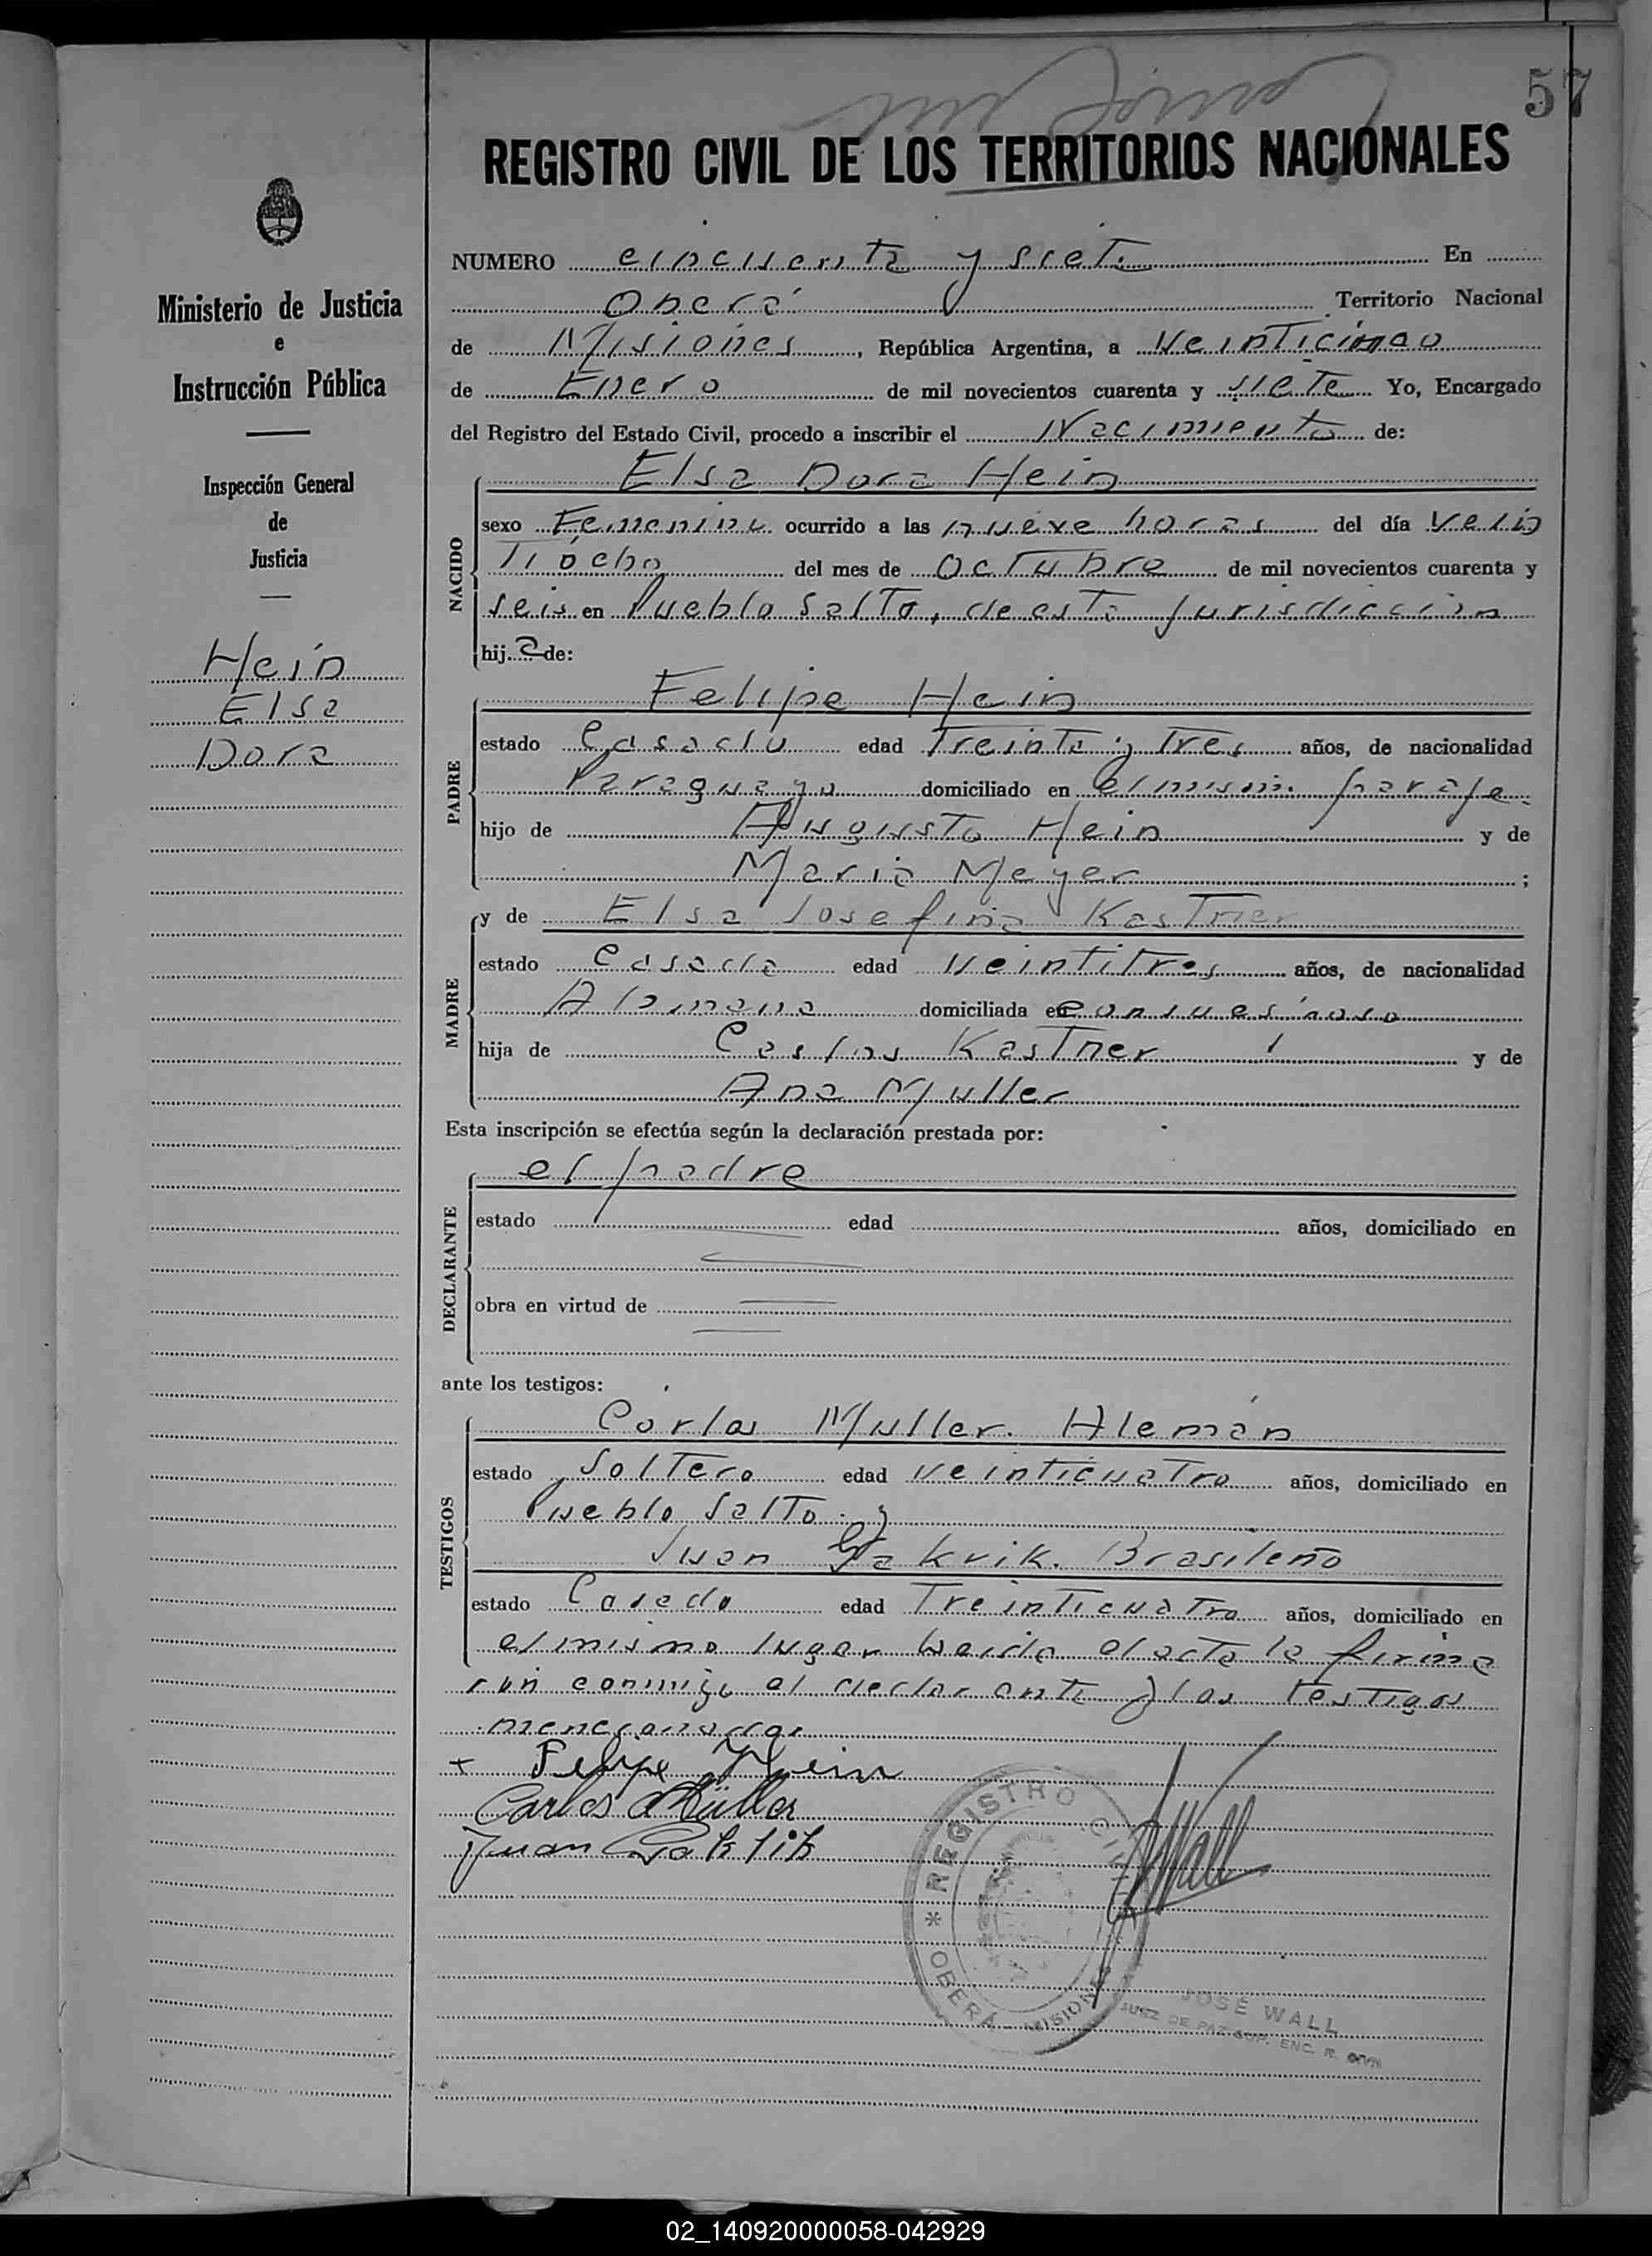 57
REGISTRO CIVIL DE LOS TERRITORIOS NACIONALES
Ministerio de Justicia
e
Instrucción Pública
Inspección General
de
Justicia
Hein
Elsa
Dora
NUMERO cincuenta y siete En
Oberá Territorio Nacional
de Misiones, República Argentina, a Veinticinco
de Enero de mil novecientos cuarenta y siete Yo, Encargado
del Registro del Estado Civil, procedo a inscribir el Nacimiento de:
NACIDO
Elsa Dora Hein
sexo Femenino ocurrido a las nueve horas del día Vein
tiocho del mes de Octubre de mil novecientos cuarenta y
seis en Pueblo Salto, de esta jurisdiccion
hij a de:
PADRE
Felipe Hein
estado Casado edad Treinta y Tres años, de nacionalidad
Paraguayo domiciliado en el mismo paraje
hijo de Augusto Hein y de
Maria Meyer ;
MADRE
y de Elsa Josefina Kastner
estado Casada edad Veintitres años, de nacionalidad
Alemana domiciliada en con su esposo
hija de Carlos Kastner y de
Ana Muller
Esta inscripción se efectúa según la declaración prestada por:
DECLARANTE
el padre
estado edad años, domiciliado en
obra en virtud de
ante los testigos:
TESTIGOS
Carlos Muller. Alemán
estado Soltero edad Veinticuatro años, domiciliado en
Pueblo Salto y
Juan Brasileño
estado Casado edad Treinticuatro años, domiciliado en
el mismo lugar Leida el acta la firma
ron conmigo el declarante y los testigos
mencionados
+ Felipe Hein
Carlos Müller
Juan
REGISTRO CIVIL
* OBERÁ - MISIONES
JOSÉ WALL
JUEZ DE PAZ SUP. ENC. R. CIVIL
02_140920000058-042929